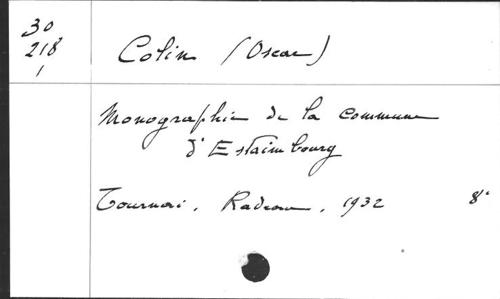 30
218
1
Colin (Oscar)
Monographie de la commune
d'Estaimbourg
Tournai, 1932 8°